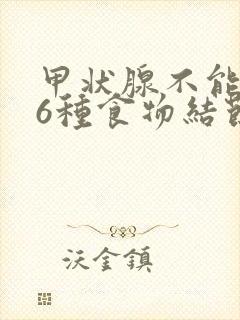 甲状腺不能
6種食物結節
沃金鎮